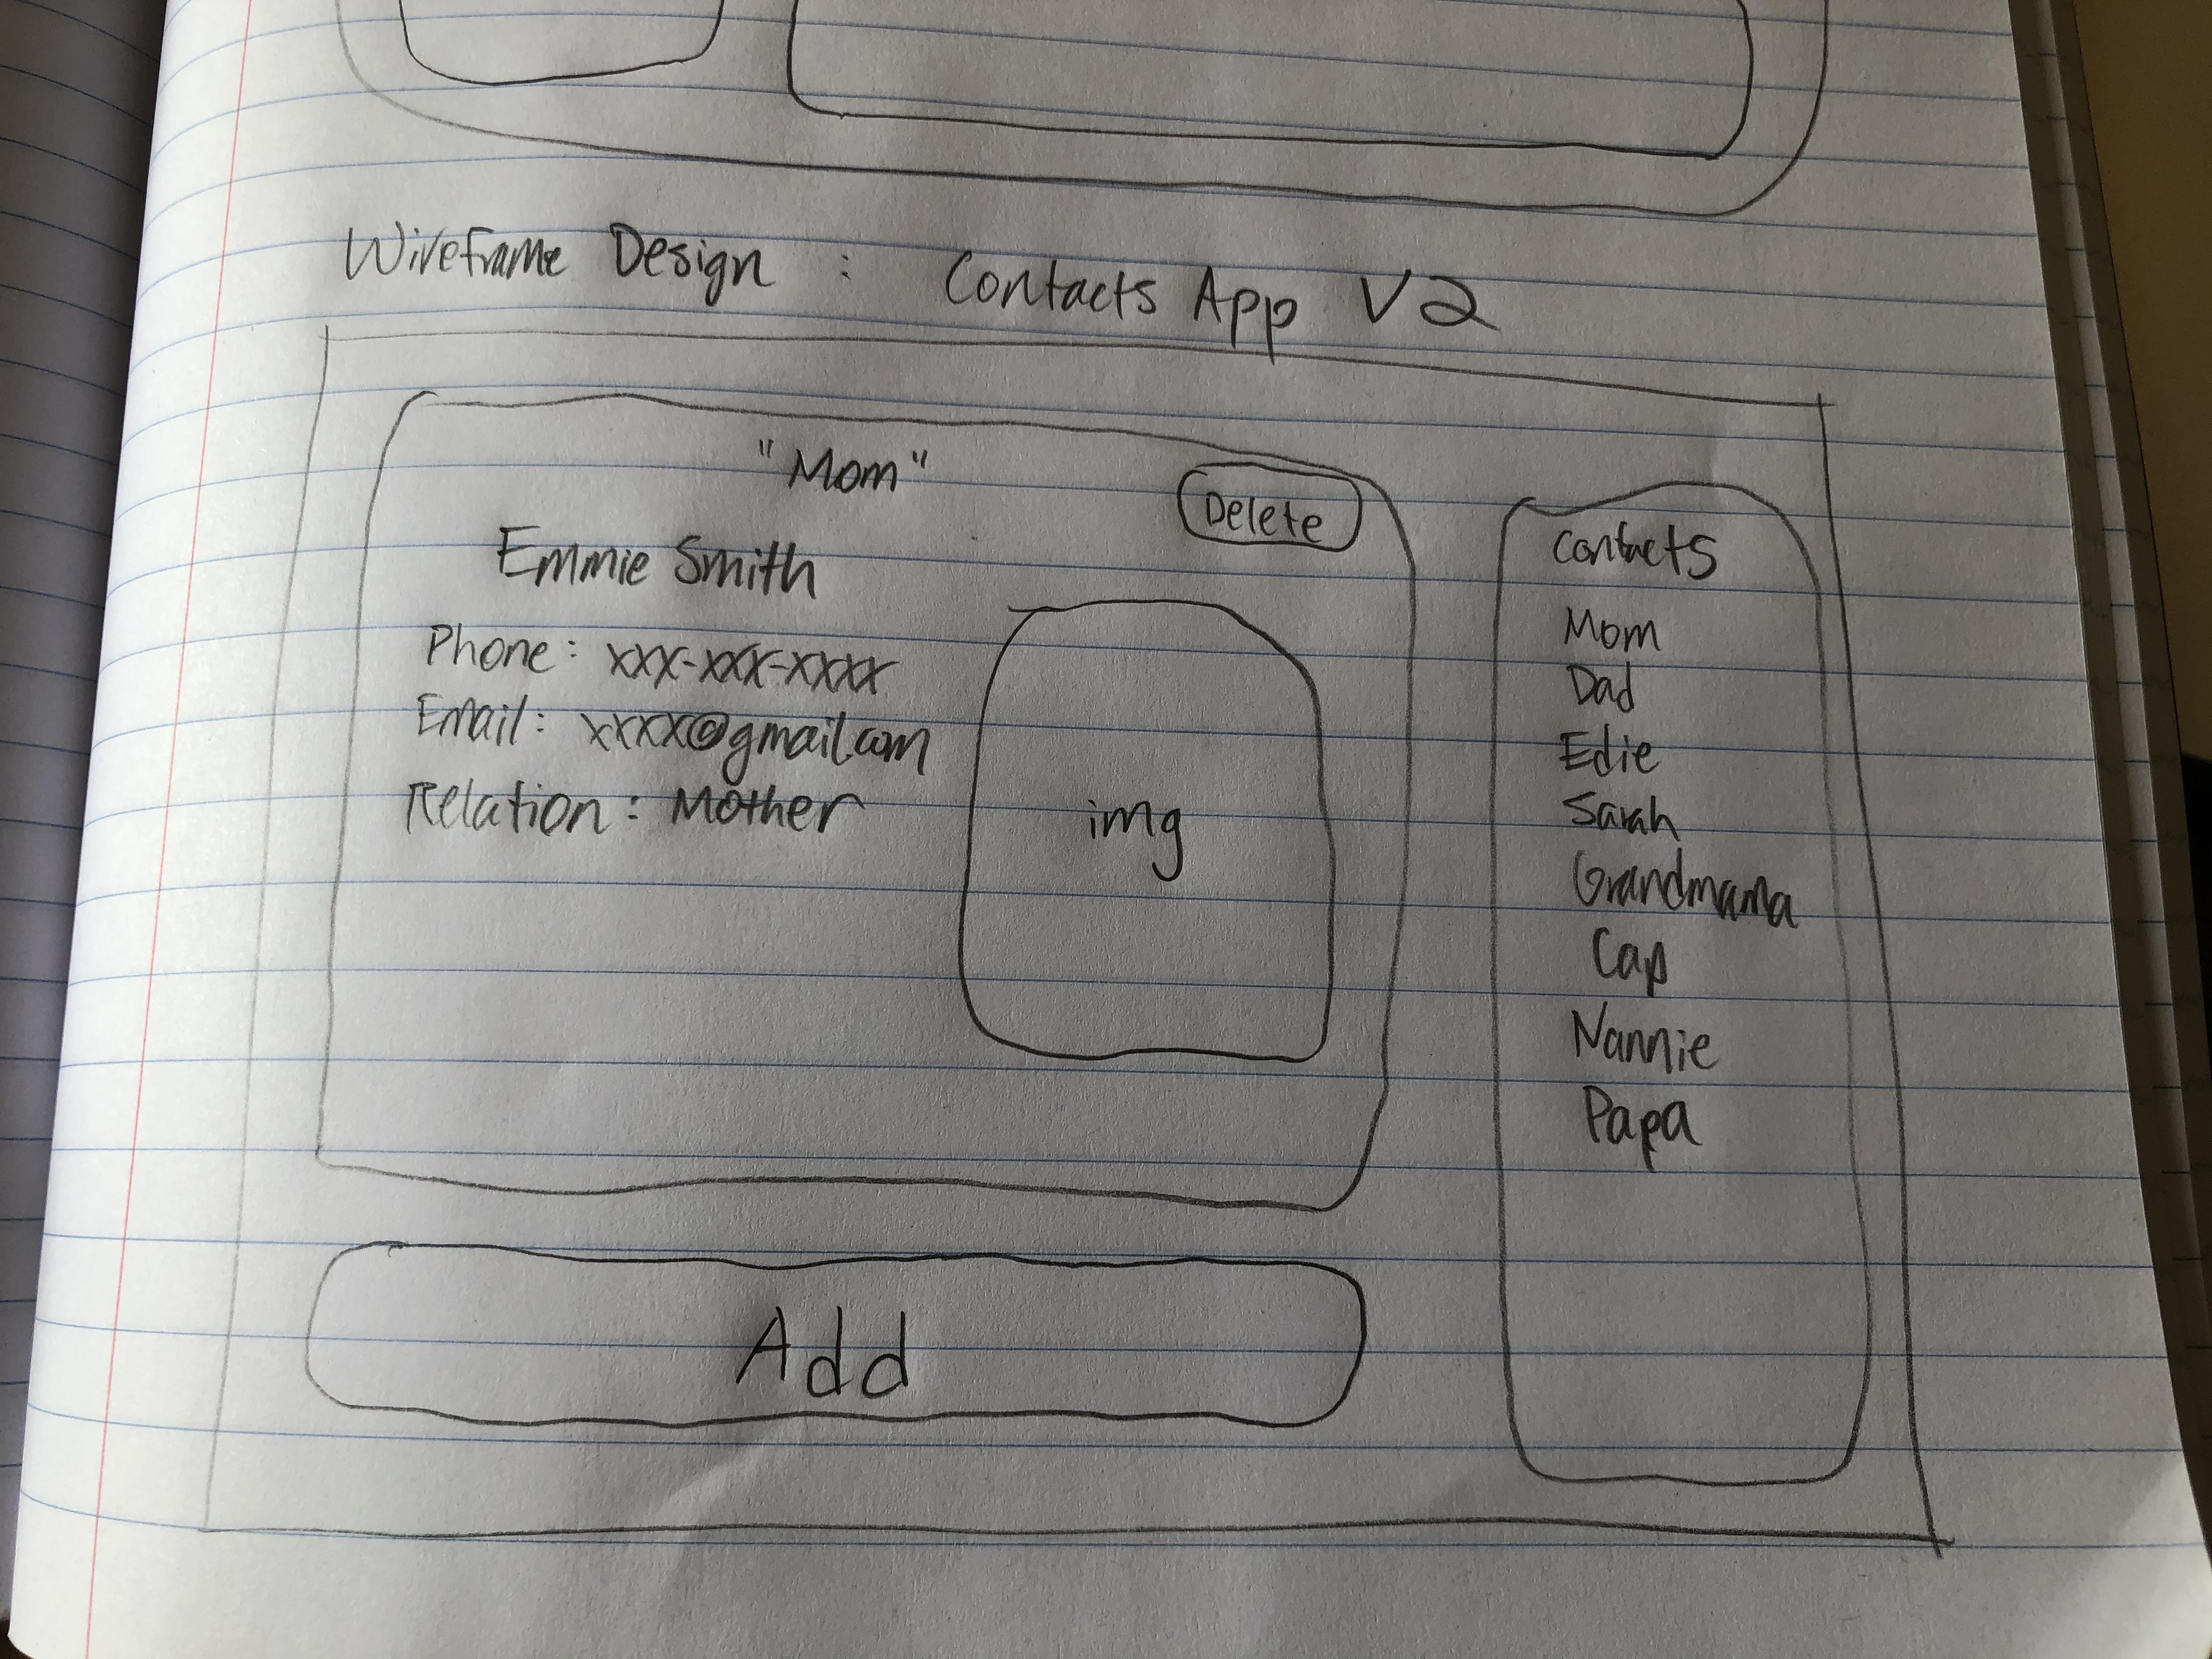 Wireframe Design : Contacts App V2
"Mom"
Delete
Emmie Smith
Phone: xxx-xxx-xxxx
Email: xxxx@gmail.com
Relation: Mother
img
Add
Contacts
Mom
Dad
Edie
Sarah
Grandmama
Cap
Nannie
Papa